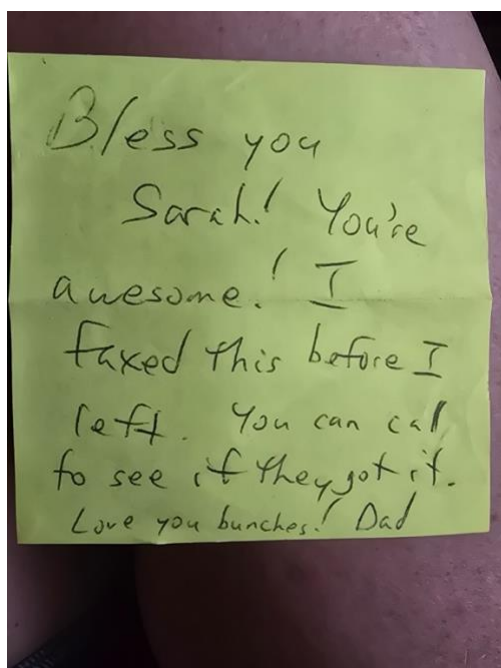 Bless you
Sarah! You're
awesome! I
faxed this before I
left. You can call
to see if they got it.
Love you bunches! Dad